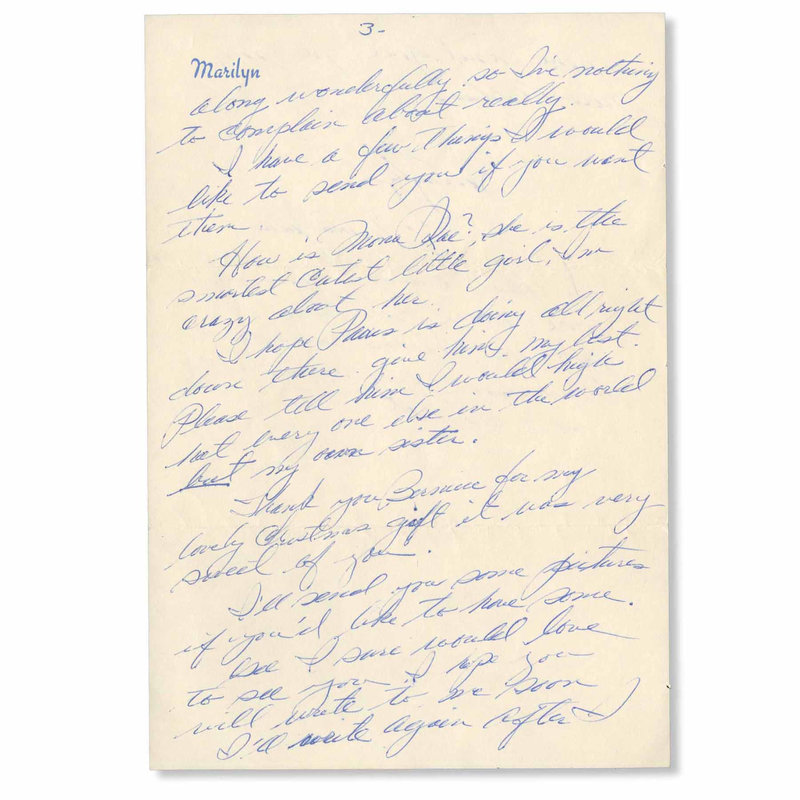 3-
Marilyn
along wonderfully so I've nothing
to complain about really.
I have a few things I would
like to send you if you want
them.
How is Mona Rae? she is the
smartest cutest little girl, I'm
crazy about her.
I hope Paris is doing all right
down there. give him my best.
Please tell him I would high
hat every one else in the world
but my own sister.
Thank you Bernice for my
lovely Christmas gift it was very
sweet of you.
I'll send you some pictures
if you'd like to have some.
I sure would love
to see you I hope you
will write to me soon
I'll write again after I